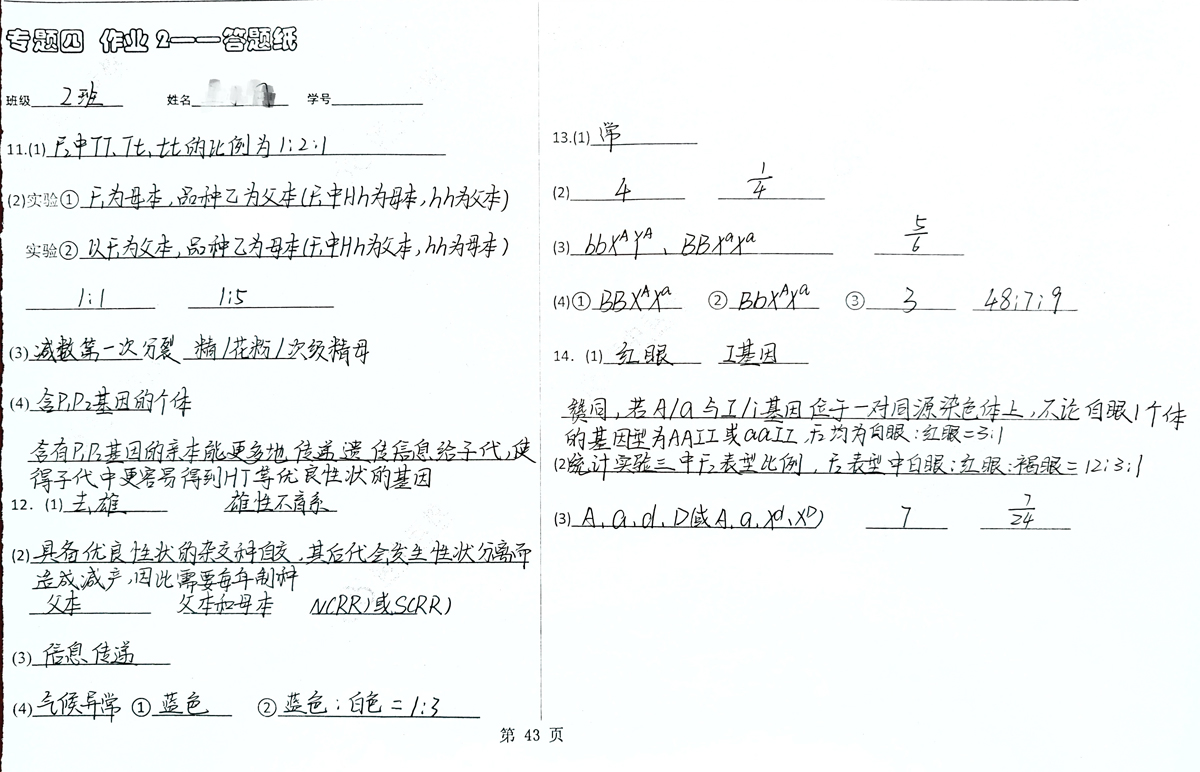 专题四 作业2——答题纸
班级 2班 姓名 学号
11.(1) F₂中TT、Tt、tt的比例为1:2:1
(2)实验① F₁为母本,品种乙为父本(F₁中Hh为母本,hh为父本)
实验② 以F₁为父本,品种乙为母本(F₁中Hh为父本,hh为母本)
1:1 1:5
(3) 减数第一次分裂 精/花粉/次级精母
(4) 含P₁P₂基因的个体
含有P₁P₂基因的亲本能更多地传递遗传信息给子代,使
得子代中更容易得到HT等优良性状的基因
12. (1) 去雄 雄性不育系
(2) 具备优良性状的杂交种自交,其后代会发生性状分离而
造成减产,因此需要每年制种
父本 父本和母本 N(RR)或S(RR)
(3) 信息传递
(4) 气候异常 ① 蓝色 ② 蓝色:白色=1:3
13.(1) 常
(2) 4 1/4
(3) bbXᴬYᴬ、BBXᵃXᵃ 5/6
(4)① BBXᴬXᵃ ② BbXᴬXᵃ ③ 3 48:7:9
14. (1) 红眼 I基因
同,若A/a与I/i基因位于一对同源染色体上,不论白眼1个体
的基因型为AAII或aaII,F₂均为白眼:红眼=3:1
(2) 统计实验三中F₂表型比例,F₂表型中白眼:红眼:褐眼=12:3:1
(3) A、a、d、D(或A、a、Xᵈ、Xᴰ) 7 7/24
第 43 页